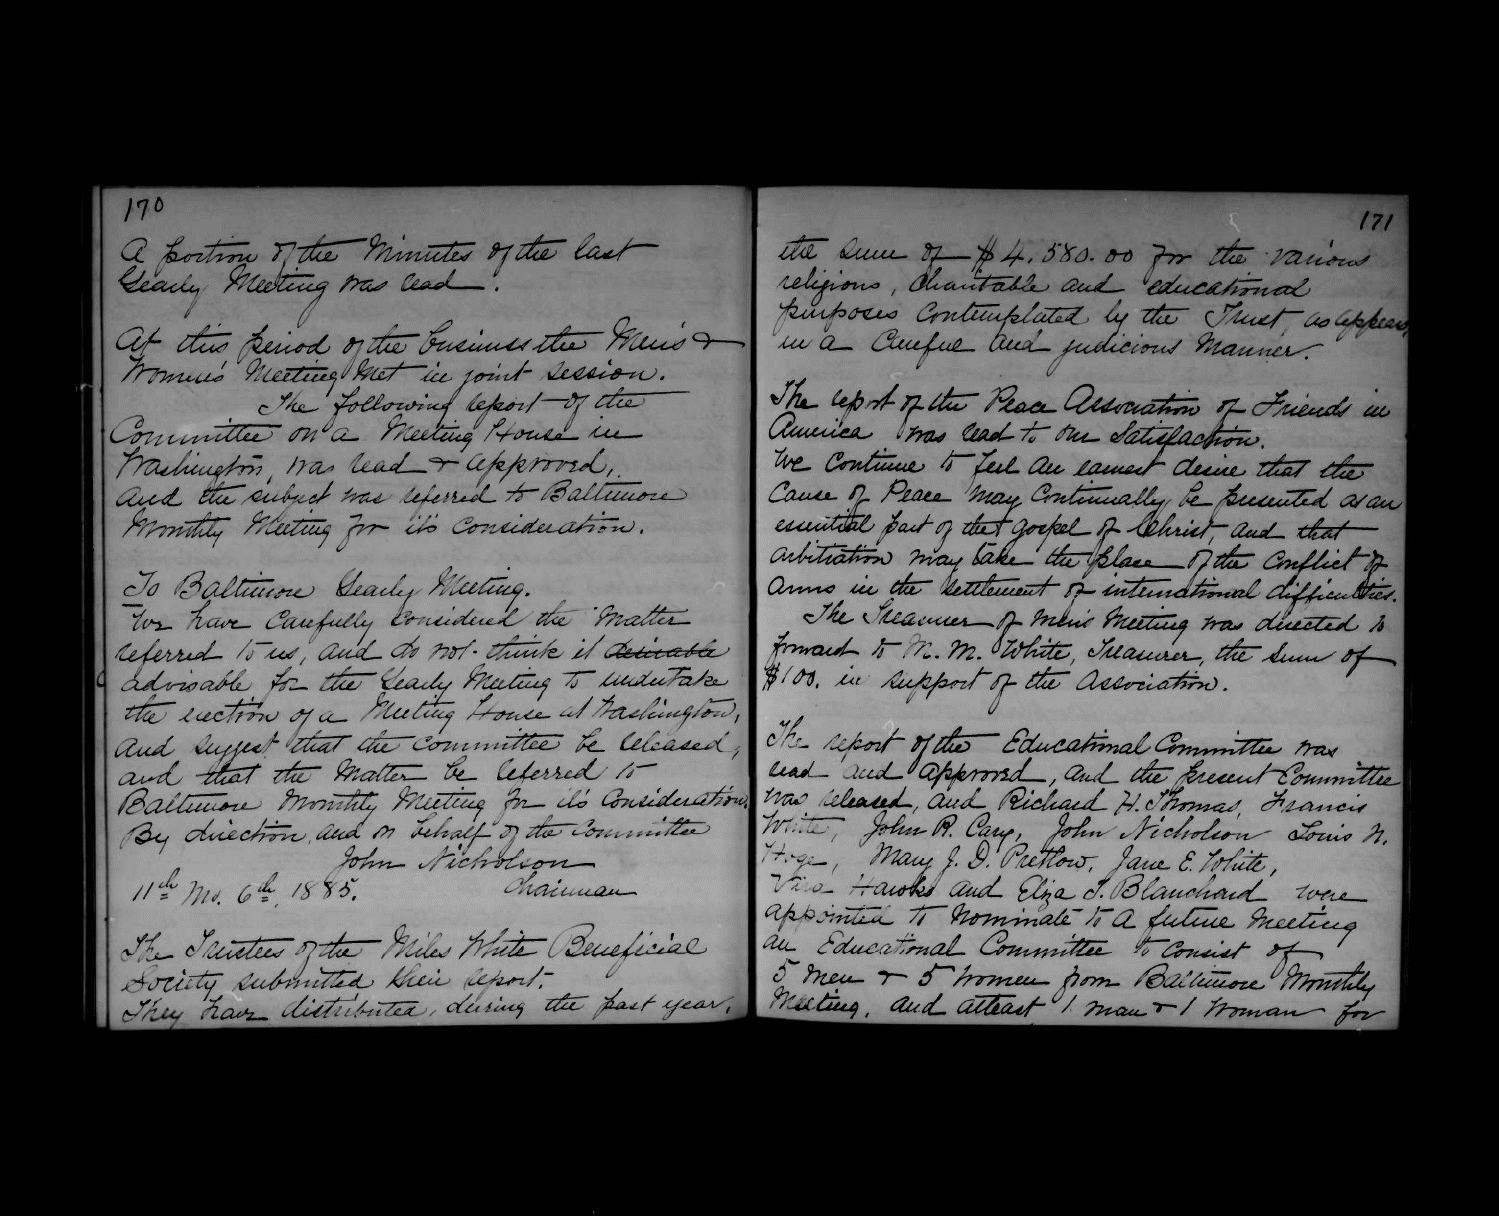 170
A portion of the Minutes of the last
Yearly Meeting was read.
At this period of the business the Men's &
Women's Meeting Met in joint session.
The following report of the
Committee on a Meeting House in
Washington, was read & approved,
and the subject was referred to Baltimore
Monthly Meeting for it's consideration.
To Baltimore Yearly Meeting.
We have carefully considered the Matter
referred to us, and do not think it desirable
advisable for the Yearly Meeting to undertake
the erection of a Meeting House at Washington,
and suggest that the committee be released,
and that the Matter be referred to
Baltimore Monthly Meeting for it's consideration.
By direction and on behalf of the Committee
John Nicholson
11th Mo. 6th, 1885. Chairman
The Trustees of the Miles White Beneficial
Society submitted their report.
They have distributed, during the past year,
171
the sum of $4.580.00 for the various
religious, charitable and educational
purposes contemplated by the Trust, as appears,
in a Careful and judicious Manner.
The report of the Peace Association of Friends in
America was read to our Satisfaction.
We continue to feel an earnest desire that the
Cause of Peace may Continually be presented as an
essential part of the Gospel of Christ, and that
arbitration may take the place of the Conflict of
Arms in the settlement of international difficulties.
The Treasurer of Men's Meeting was directed to
forward to M. M. White, Treasurer, the sum of
$100. in support of the Association.
The report of the Educational Committee was
read and approved, and the present Committee
was released, and Richard H. Thomas, Francis
White, John R. Cary, John Nicholson Louis N.
Hoge, Mary J. D. Pretlow, Jane E. White,
Hawks and Eliza T. Blanchard were
appointed to nominate to a future Meeting
an Educational Committee to consist of
5 men & 5 women from Baltimore Monthly
Meeting, and atleast 1 man & 1 woman for